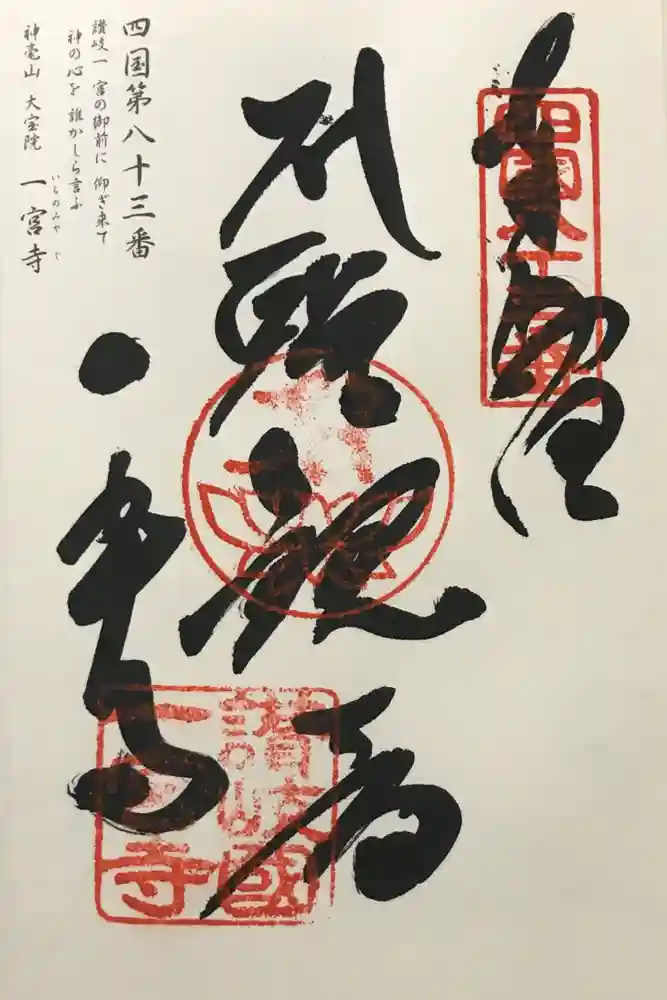 四國八十三番
聖観音
一宮寺
讃岐國
一宮寺
四国第八十三番
讃岐一宮の御前に 仰ぎ来て
神の心を 誰かしら言ふ
神毫山 大宝院 一宮寺
いちのみやじ